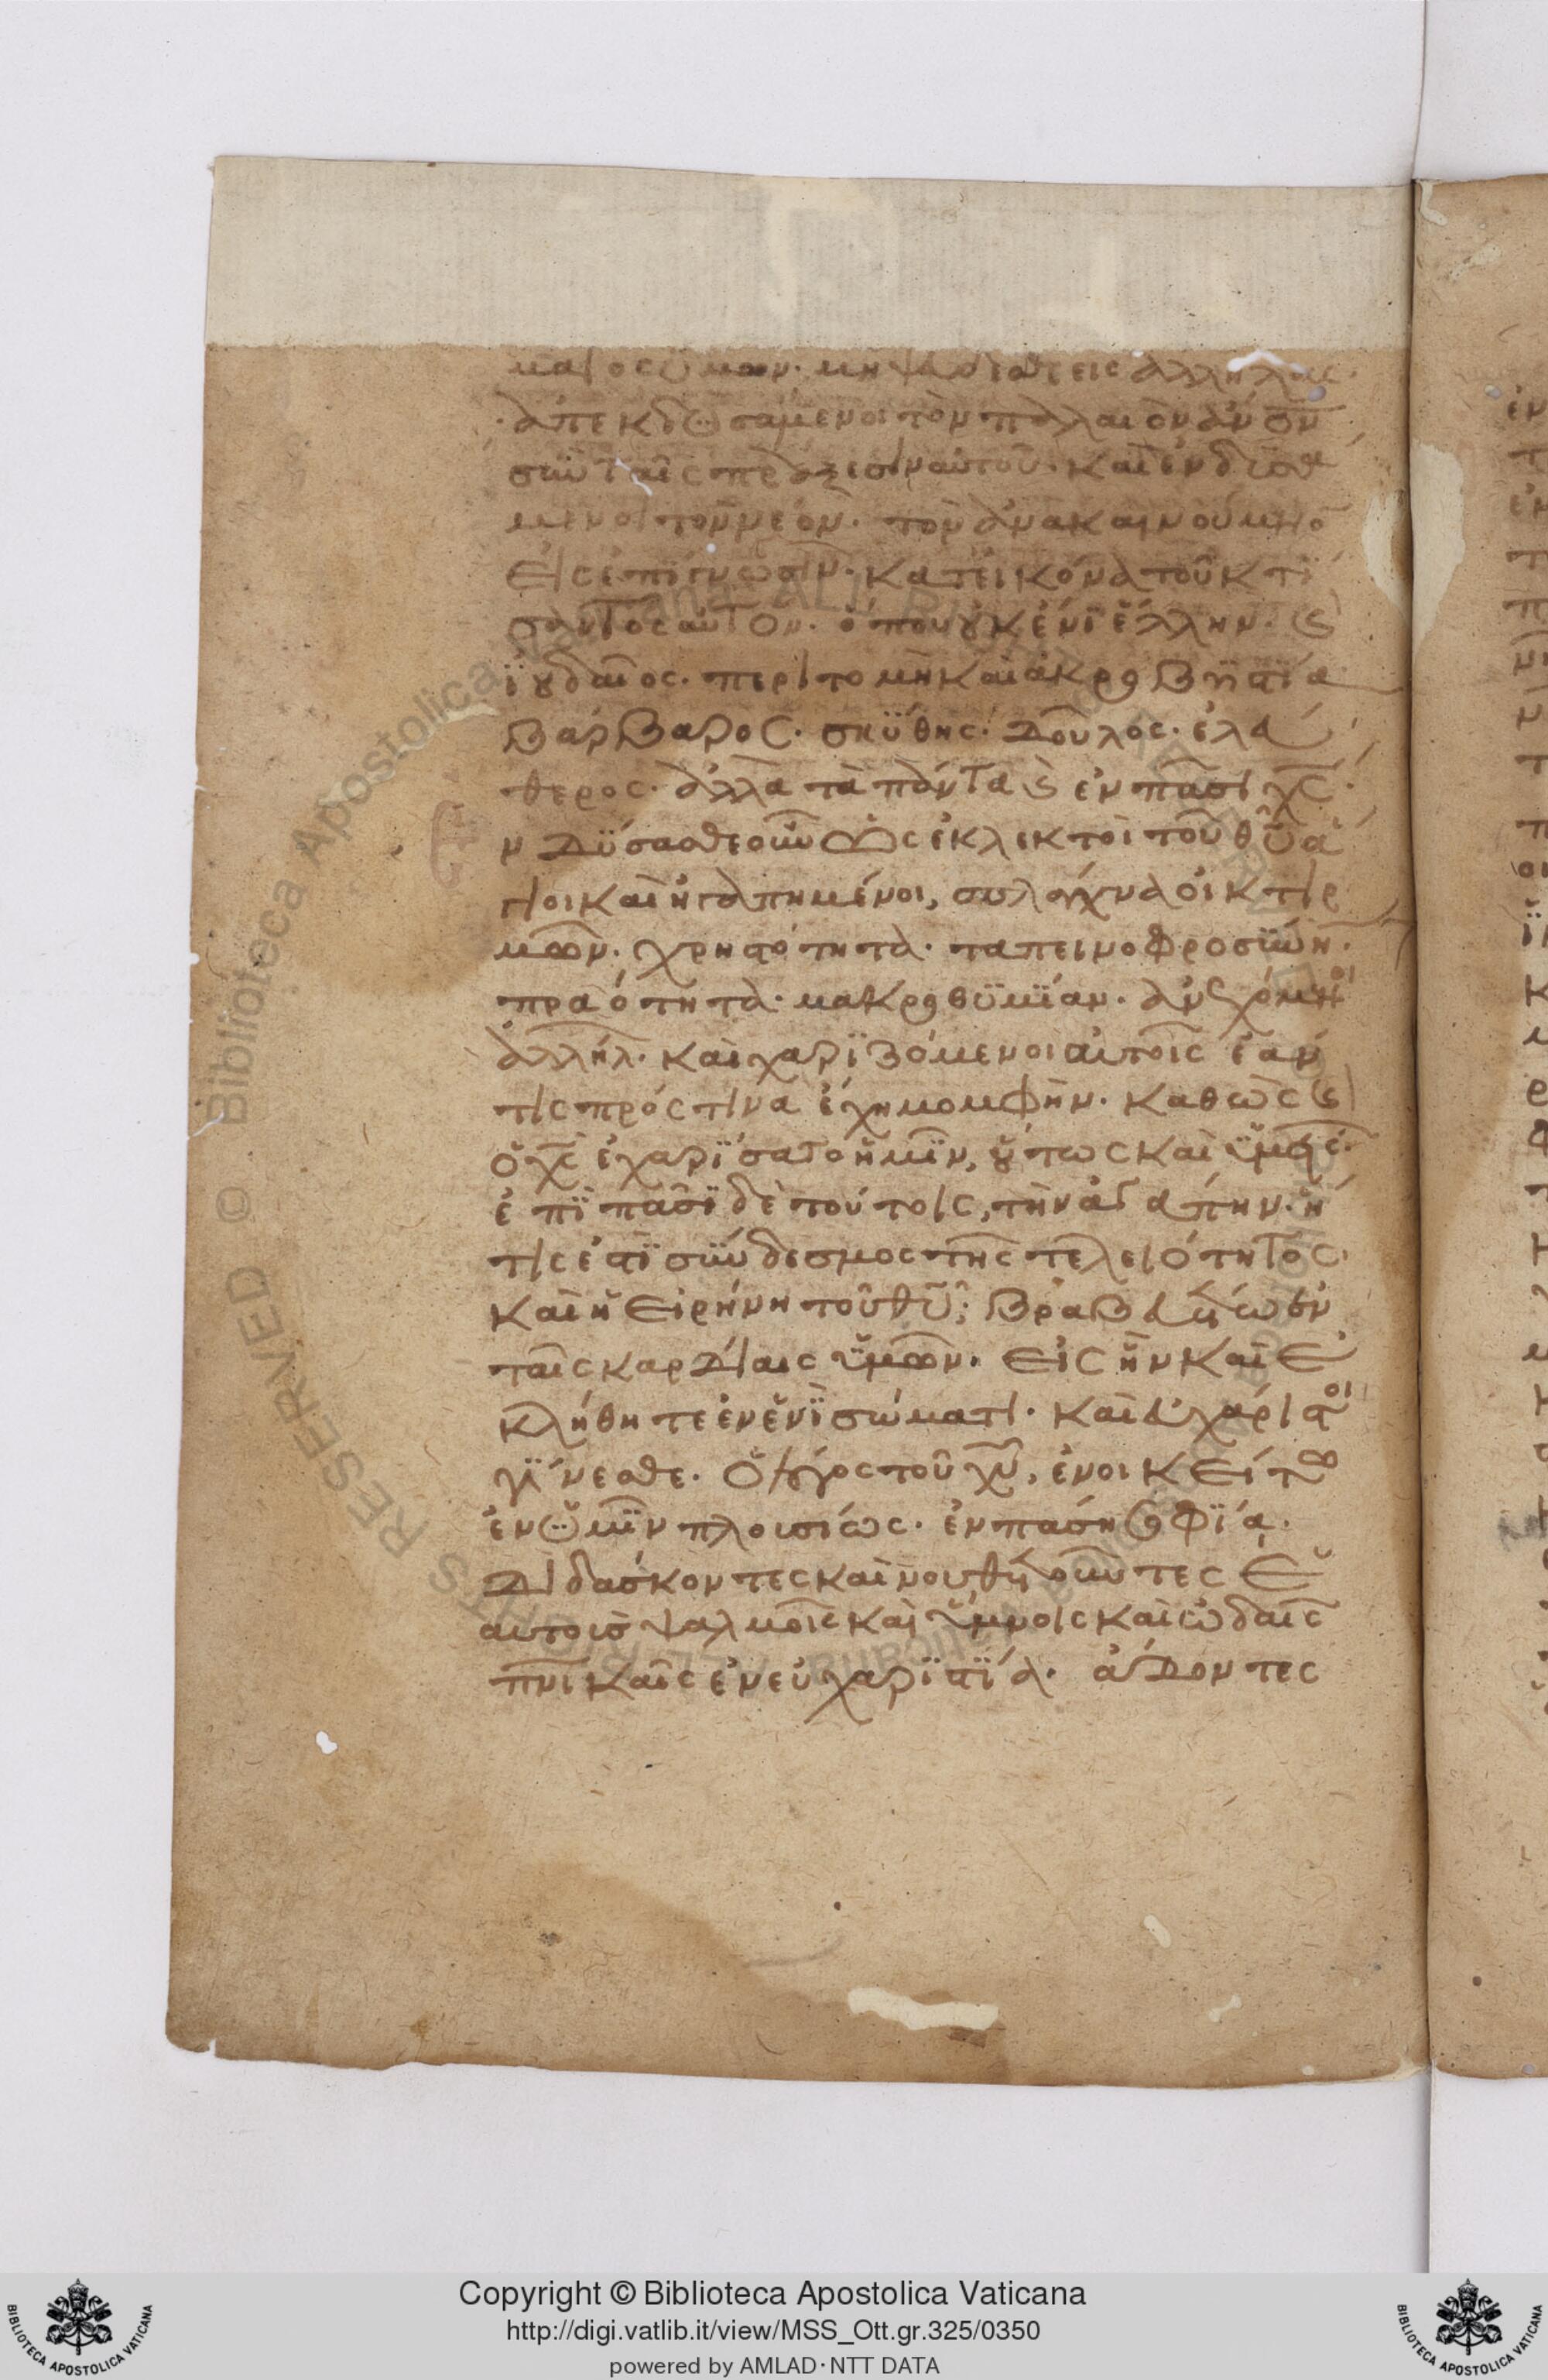 ματος ὑμῶν. μὴ ψεύδεσθε εἰς ἀλλήλους.
ἀπεκδυσάμενοι τὸν παλαιὸν ἄν̅ο̅ν̅
σὺν ταῖς πράξεσιν αὐτοῦ. καὶ ἐνδυσά
μενοι τὸν νέον. τὸν ἀνακαινούμενον
εἰς ἐπίγνωσιν. κατεικόνα τοῦ κτϊ
σαντος αὐτόν. ὅπου οὐκ ἔνϊ ἕλλην. καὶ
ϊουδαῖος. περιτομὴ καὶ ἀκροβηστϊα
βάρβαρος. σκϋθης. δοῦλος. ἐλεύ
θερος. ἀλλὰ τὰ πάντα καὶ ἐν πᾶσι χ̅ς̅.
ν δϋσασθε οὖν ὡς ἐκλεκτοὶ τοῦ θ̅υ̅ ἅ
γιοι καὶ ἠγαπημένοι, σπλάγχνα οἰκτιρ
μῶν. χρηστότητα. ταπεινοφροσύνην.
πραότητα. μακροθϋμϊαν. ἀνεχόμενοι
ἀλλήλ. καὶ χαρϊζόμενοι αὐτοῖς ἐάν
τις πρός τινα ἔχη μομφήν. καθὼς καὶ
ὁ χ̅ς̅ ἐχαρϊσατο ἡμῖν, οὕτως καὶ ὑμεῖς.
ἐπϊ πᾶσϊ δὲ τούτοις, τὴν ἀγάπην. ἥ
τις ἐστϊ σύνδεσμος τῆς τελειότητος.
καὶ ἡ εἰρήνη τοῦ θ̅υ̅, βραβευέτω ἐν
ταῖς καρδίαις ὑμῶν. εἰς ἣν καὶ ἐ
κλήθητε ἐν ἑνϊ σώματι. καὶ εὐχάριστοι
γϊνεσθε. ὁ λόγος τοῦ χ̅υ̅, ἐνοικείτω
ἐν ὑμῖν πλουσίως. ἐν πάση σοφϊα.
διδάσκοντες καὶ νουθετοῦντες ἑ
αυτοισ ψαλμοῖς καὶ ὕμνοις καὶ ὠδαῖς
π̅ν̅ικαῖς ἐν εὐχαρϊστϊα. ἄδοντες
Copyright © Biblioteca Apostolica Vaticana
http://digi.vatlib.it/view/MSS_Ott.gr.325/0350
powered by AMLAD·NTT DATA